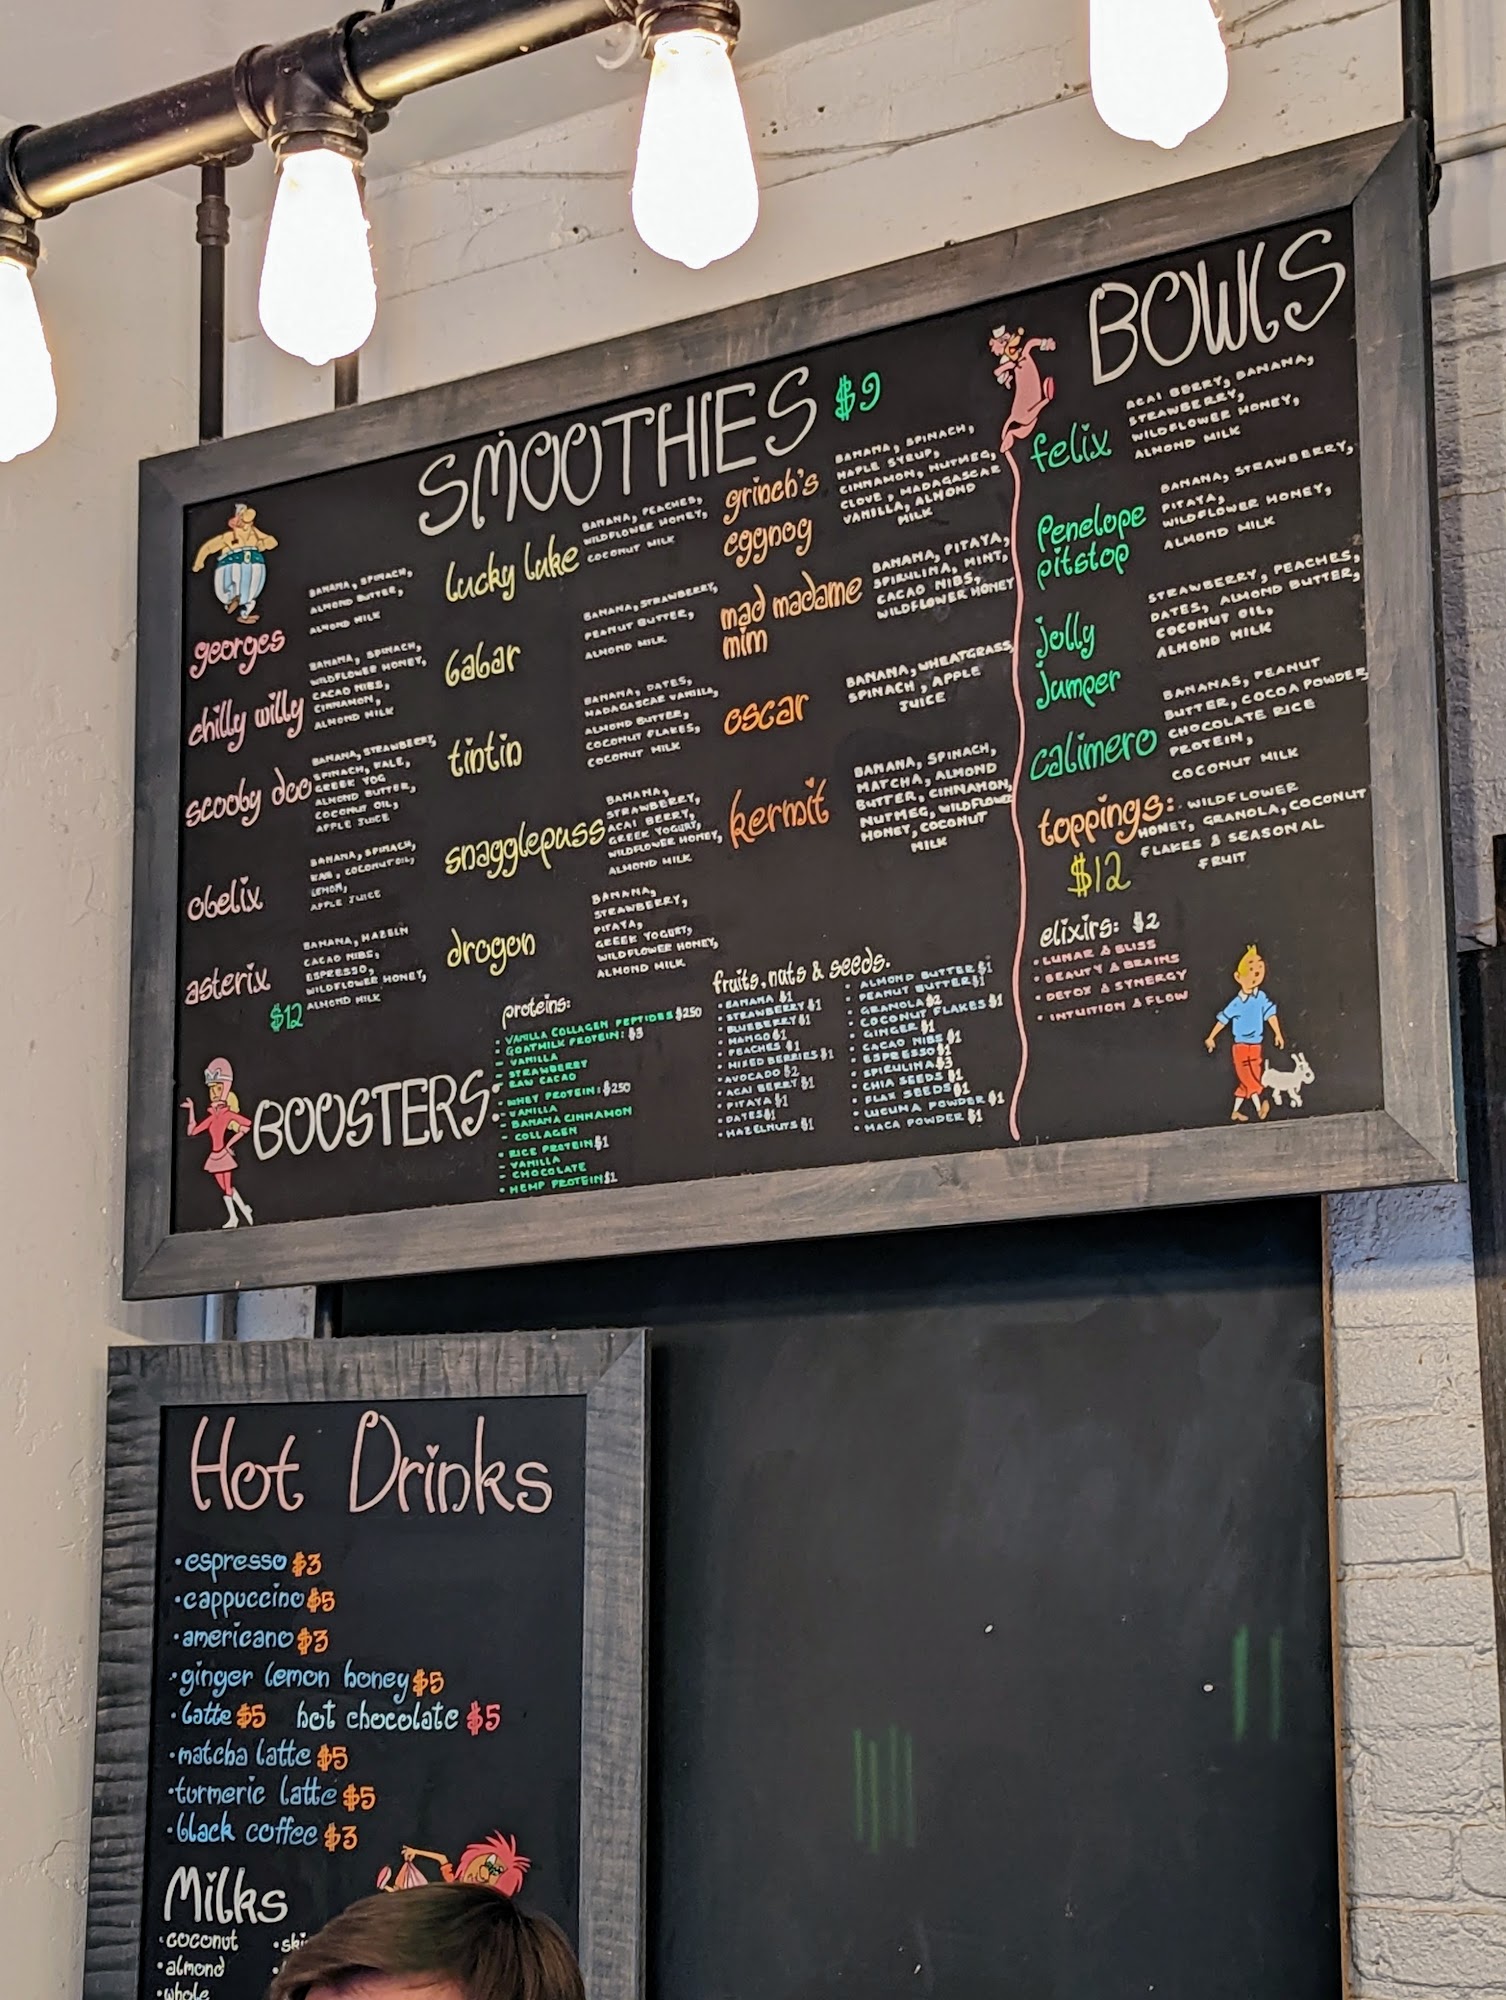 SMOOTHIES $9
georges
BANANA, SPINACH,
ALMOND BUTTER,
ALMOND MILK
chilly willy
BANANA, SPINACH,
WILDFLOWER HONEY,
CACAO NIBS,
CINNAMON,
ALMOND MILK
scooby doo
BANANA, STRAWBERRY,
SPINACH, KALE,
GREEK YOG
ALMOND BUTTER,
COCONUT OIL,
APPLE JUICE
obelix
BANANA, SPINACH,
KALE, COCONUT OIL,
LEMON,
APPLE JUICE
asterix
$12
BANANA, HAZELN
CACAO NIBS,
ESPRESSO,
WILDFLOWER HONEY,
ALMOND MILK
lucky luke
BANANA, PEACHES,
WILDFLOWER HONEY,
COCONUT MILK
babar
BANANA, STRAWBERRY,
PEANUT BUTTER,
ALMOND MILK
tintin
BANANA, DATES,
MADAGASCAR VANILLA,
ALMOND BUTTER,
COCONUT FLAKES,
COCONUT MILK
snagglepuss
BANANA,
STRAWBERRY,
ACAI BERRY,
GREEK YOGURT,
WILDFLOWER HONEY,
ALMOND MILK
drogon
BANANA,
STRAWBERRY,
PITAYA,
GREEK YOGURT,
WILDFLOWER HONEY,
ALMOND MILK
grinch's
eggnog
BANANA, SPINACH,
MAPLE SYRUP,
CINNAMON, NUTMEG,
CLOVE, MADAGASCAR
VANILLA, ALMOND
MILK
mad madame
mim
BANANA, PITAYA,
SPIRULINA, MINT,
CACAO NIBS,
WILDFLOWER HONEY
oscar
BANANA, WHEATGRASS
SPINACH, APPLE
JUICE
kermit
BANANA, SPINACH,
MATCHA, ALMOND
BUTTER, CINNAMON,
NUTMEG, WILDFLOWER
HONEY, COCONUT
MILK
BOWLS
felix
ACAI BERRY, BANANA,
STRAWBERRY,
WILDFLOWER HONEY,
ALMOND MILK
Penelope
pitstop
BANANA, STRAWBERRY,
PITAYA,
WILDFLOWER HONEY,
ALMOND MILK
jolly
jumper
STRAWBERRY, PEACHES,
DATES, ALMOND BUTTER,
COCONUT OIL,
ALMOND MILK
calimero
BANANAS, PEANUT
BUTTER, COCOA POWDER,
CHOCOLATE RICE
PROTEIN,
COCONUT MILK
toppings: WILDFLOWER
HONEY, GRANOLA, COCONUT
FLAKES & SEASONAL
FRUIT
$12
elixirs: $2
• LUNAR & BLISS
• BEAUTY & BRAINS
• DETOX & SYNERGY
• INTUITION & FLOW
BOOSTERS:
proteins:
• VANILLA COLLAGEN PEPTIDES $250
• GOATMILK PROTEIN: $3
- VANILLA
- STRAWBERRY
- RAW CACAO
• WHEY PROTEIN: $250
- VANILLA
- BANANA CINNAMON
- COLLAGEN
• RICE PROTEIN $1
- VANILLA
- CHOCOLATE
• HEMP PROTEIN $1
fruits, nuts & seeds.
• BANANA $1
• STRAWBERRY $1
• BLUEBERRY $1
• MANGO $1
• PEACHES $1
• MIXED BERRIES $1
• AVOCADO $2
• ACAI BERRY $1
• PITAYA $1
• DATES $1
• HAZELNUTS $1
• ALMOND BUTTER $1
• PEANUT BUTTER $1
• GRANOLA $2
• COCONUT FLAKES $1
• GINGER $1
• CACAO NIBS $1
• ESPRESSO $2
• SPIRULINA $3
• CHIA SEEDS $1
• FLAX SEEDS $1
• LUCUMA POWDER $1
• MACA POWDER $1
Hot Drinks
• espresso $3
• cappuccino $5
• americano $3
• ginger lemon honey $5
• latte $5 hot chocolate $5
• matcha latte $5
• turmeric latte $5
• black coffee $3
Milks
• coconut
• almond
• whole